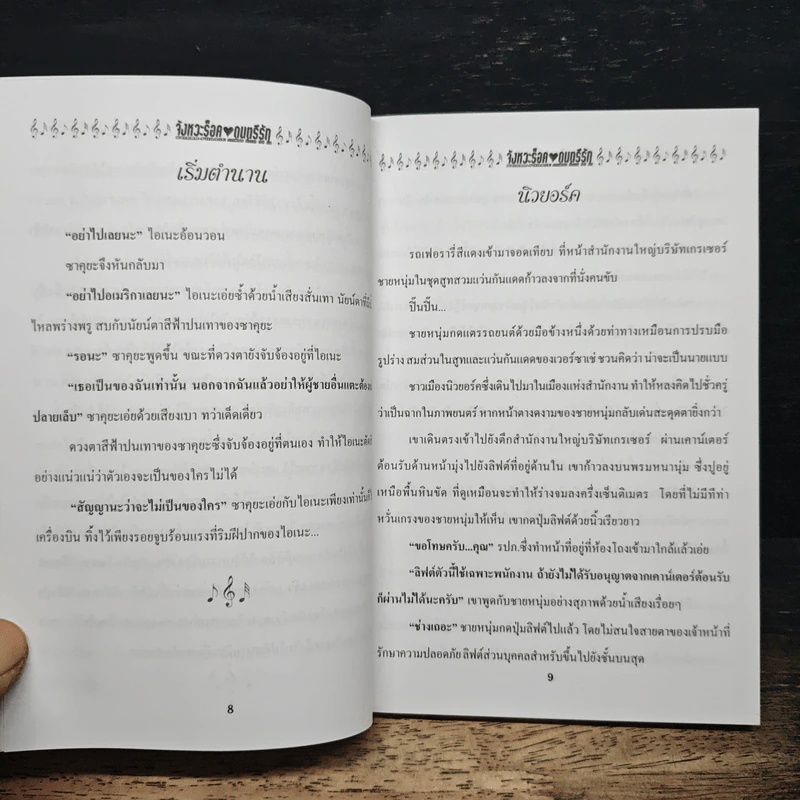 จังหวะร็อค♥ดนตรีรัก
เริ่มตำนาน
“อย่าไปเลยนะ” ไอเนะอ้อนวอน
ซาคุยะจึงหันกลับมา
“อย่าไปอเมริกาเลยนะ” ไอเนะเอ่ยซ้ำด้วยน้ำเสียงสั่นเทา นัยน์ตาที่มี
ไหลพร่างพรู สบกับนัยน์ตาสีฟ้าปนเทาของซาคุยะ
“รอนะ” ซาคุยะพูดขึ้น ขณะที่ดวงตายังจับจ้องอยู่ที่ไอเนะ
“เธอเป็นของฉันเท่านั้น นอกจากฉันแล้วอย่าให้ผู้ชายอื่นแตะต้อง
ปลายเล็บ” ซาคุยะเอ่ยด้วยเสียงเบา ทว่าเด็ดเดี่ยว
ดวงตาสีฟ้าปนเทาของซาคุยะซึ่งจับจ้องอยู่ที่ตนเอง ทำให้ไอเนะ
อย่างแน่วแน่ว่าตัวเองจะเป็นของใครไม่ได้
“สัญญานะว่าจะไม่เป็นของใคร” ซาคุยะเอ่ยกับไอเนะเพียงเท่านั้น
เครื่องบิน ทิ้งไว้เพียงรอยจูบร้อนแรงที่ริมฝีปากของไอเนะ...
8
จังหวะร็อค♥ดนตรีรัก
นิวยอร์ค
รถเฟอรารี่สีแดงเข้ามาจอดเทียบ ที่หน้าสำนักงานใหญ่บริษัทเกรเซอร์
ชายหนุ่มในชุดสูทสวมแว่นกันแดดก้าวลงจากที่นั่งคนขับ
ปิ๊นปิ๊น...
ชายหนุ่มกดแตรรถยนต์ด้วยมือข้างหนึ่งด้วยท่าทางเหมือนการปรบมือ
รูปร่าง สมส่วนในสูทและแว่นกันแดดของเวอร์ซาเช่ ชวนคิดว่า น่าจะเป็นนายแบบ
ชาวเมืองนิวยอร์คซึ่งเดินไปมาในเมืองแห่งสำนักงาน ทำให้หลงคิดไปชั่วครู่
ว่าเป็นฉากในภาพยนตร์ หากหน้าตางดงามของชายหนุ่มกลับเด่นสะดุดตายิ่งกว่า
เขาเดินตรงเข้าไปยังตึกสำนักงานใหญ่บริษัทเกรเซอร์ ผ่านเคาน์เตอร์
ต้อนรับด้านหน้ามุ่งไปยังลิฟต์ที่อยู่ด้านใน เขาก้าวลงบนพรมหนานุ่ม ซึ่งปูอยู่
เหนือพื้นหินขัด ที่ดูเหมือนจะทำให้ร่างจมลงครึ่งเซ็นติเมตร โดยที่ไม่มีทีท่า
หวั่นเกรงของชายหนุ่มให้เห็น เขากดปุ่มลิฟต์ด้วยนิ้วเรียวยาว
“ขอโทษครับ...คุณ” รปภ.ซึ่งทำหน้าที่อยู่ที่ห้องโถงเข้ามาใกล้แล้วเอ่ย
“ลิฟต์ตัวนี้ใช้เฉพาะพนักงาน ถ้ายังไม่ได้รับอนุญาตจากเคาน์เตอร์ต้อนรับ
ก็ผ่านไม่ได้นะครับ” เขาพูดกับชายหนุ่มอย่างสุภาพด้วยน้ำเสียงเรื่อยๆ
“ช่างเถอะ” ชายหนุ่มกดปุ่มลิฟต์ไปแล้ว โดยไม่สนใจสายตาของเจ้าหน้าที่
รักษาความปลอดภัย ลิฟต์ส่วนบุคคลสำหรับขึ้นไปยังชั้นบนสุด
9